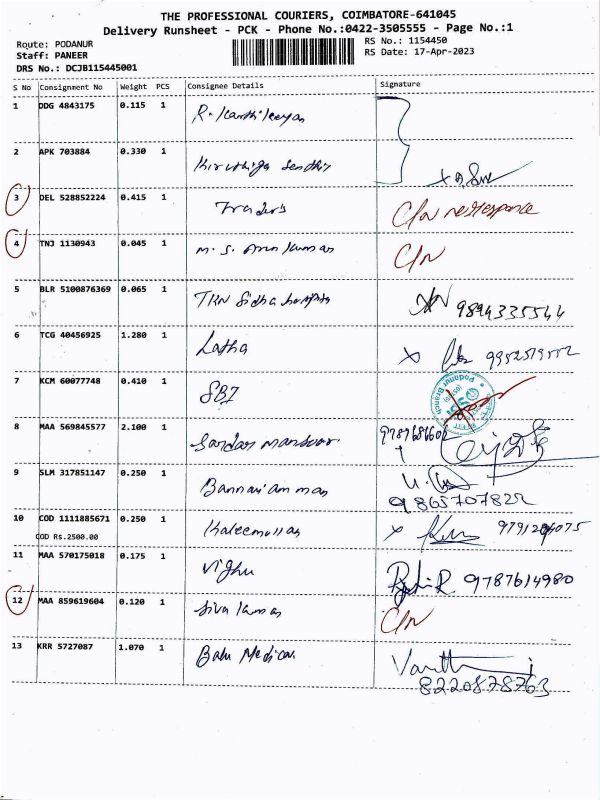 THE PROFESSIONAL COURIERS, COIMBATORE-641045
Delivery Runsheet - PCK - Phone No.:0422-3505555 - Page No.:1
Route: PODANUR
Staff: PANEER
DRS No.: DCJB115445001
RS No.: 1154450
RS Date: 17-Apr-2023
S No Consignment No Weight PCS Consignee Details Signature
1 DDG 4843175 0.115 1 R. Karthikeyan
2 APK 703884 0.330 1 Kiruthiga
3 DEL 528852224 0.415 1 Traders C/N
4 TNJ 1130943 0.045 1 M. S. Arun Kumar C/N
5 BLR 5100876369 0.065 1 TKN 9894335544
6 TCG 40456925 1.280 1 Latha X
7 KCM 60077748 0.410 1 SBI Podanur Branch
8 MAA 569845577 2.100 1 Sardar
9 SLM 317851147 0.250 1 Bannariamman 9865707822
10 COD 1111885671 0.250 1 Kaleemullah X
COD Rs.2500.00
11 MAA 570175018 0.175 1 9787614980
12 MAA 859619604 0.120 1 Siva Kumar C/N
13 KRR 5727087 1.070 1 Balu Medical
8220878763